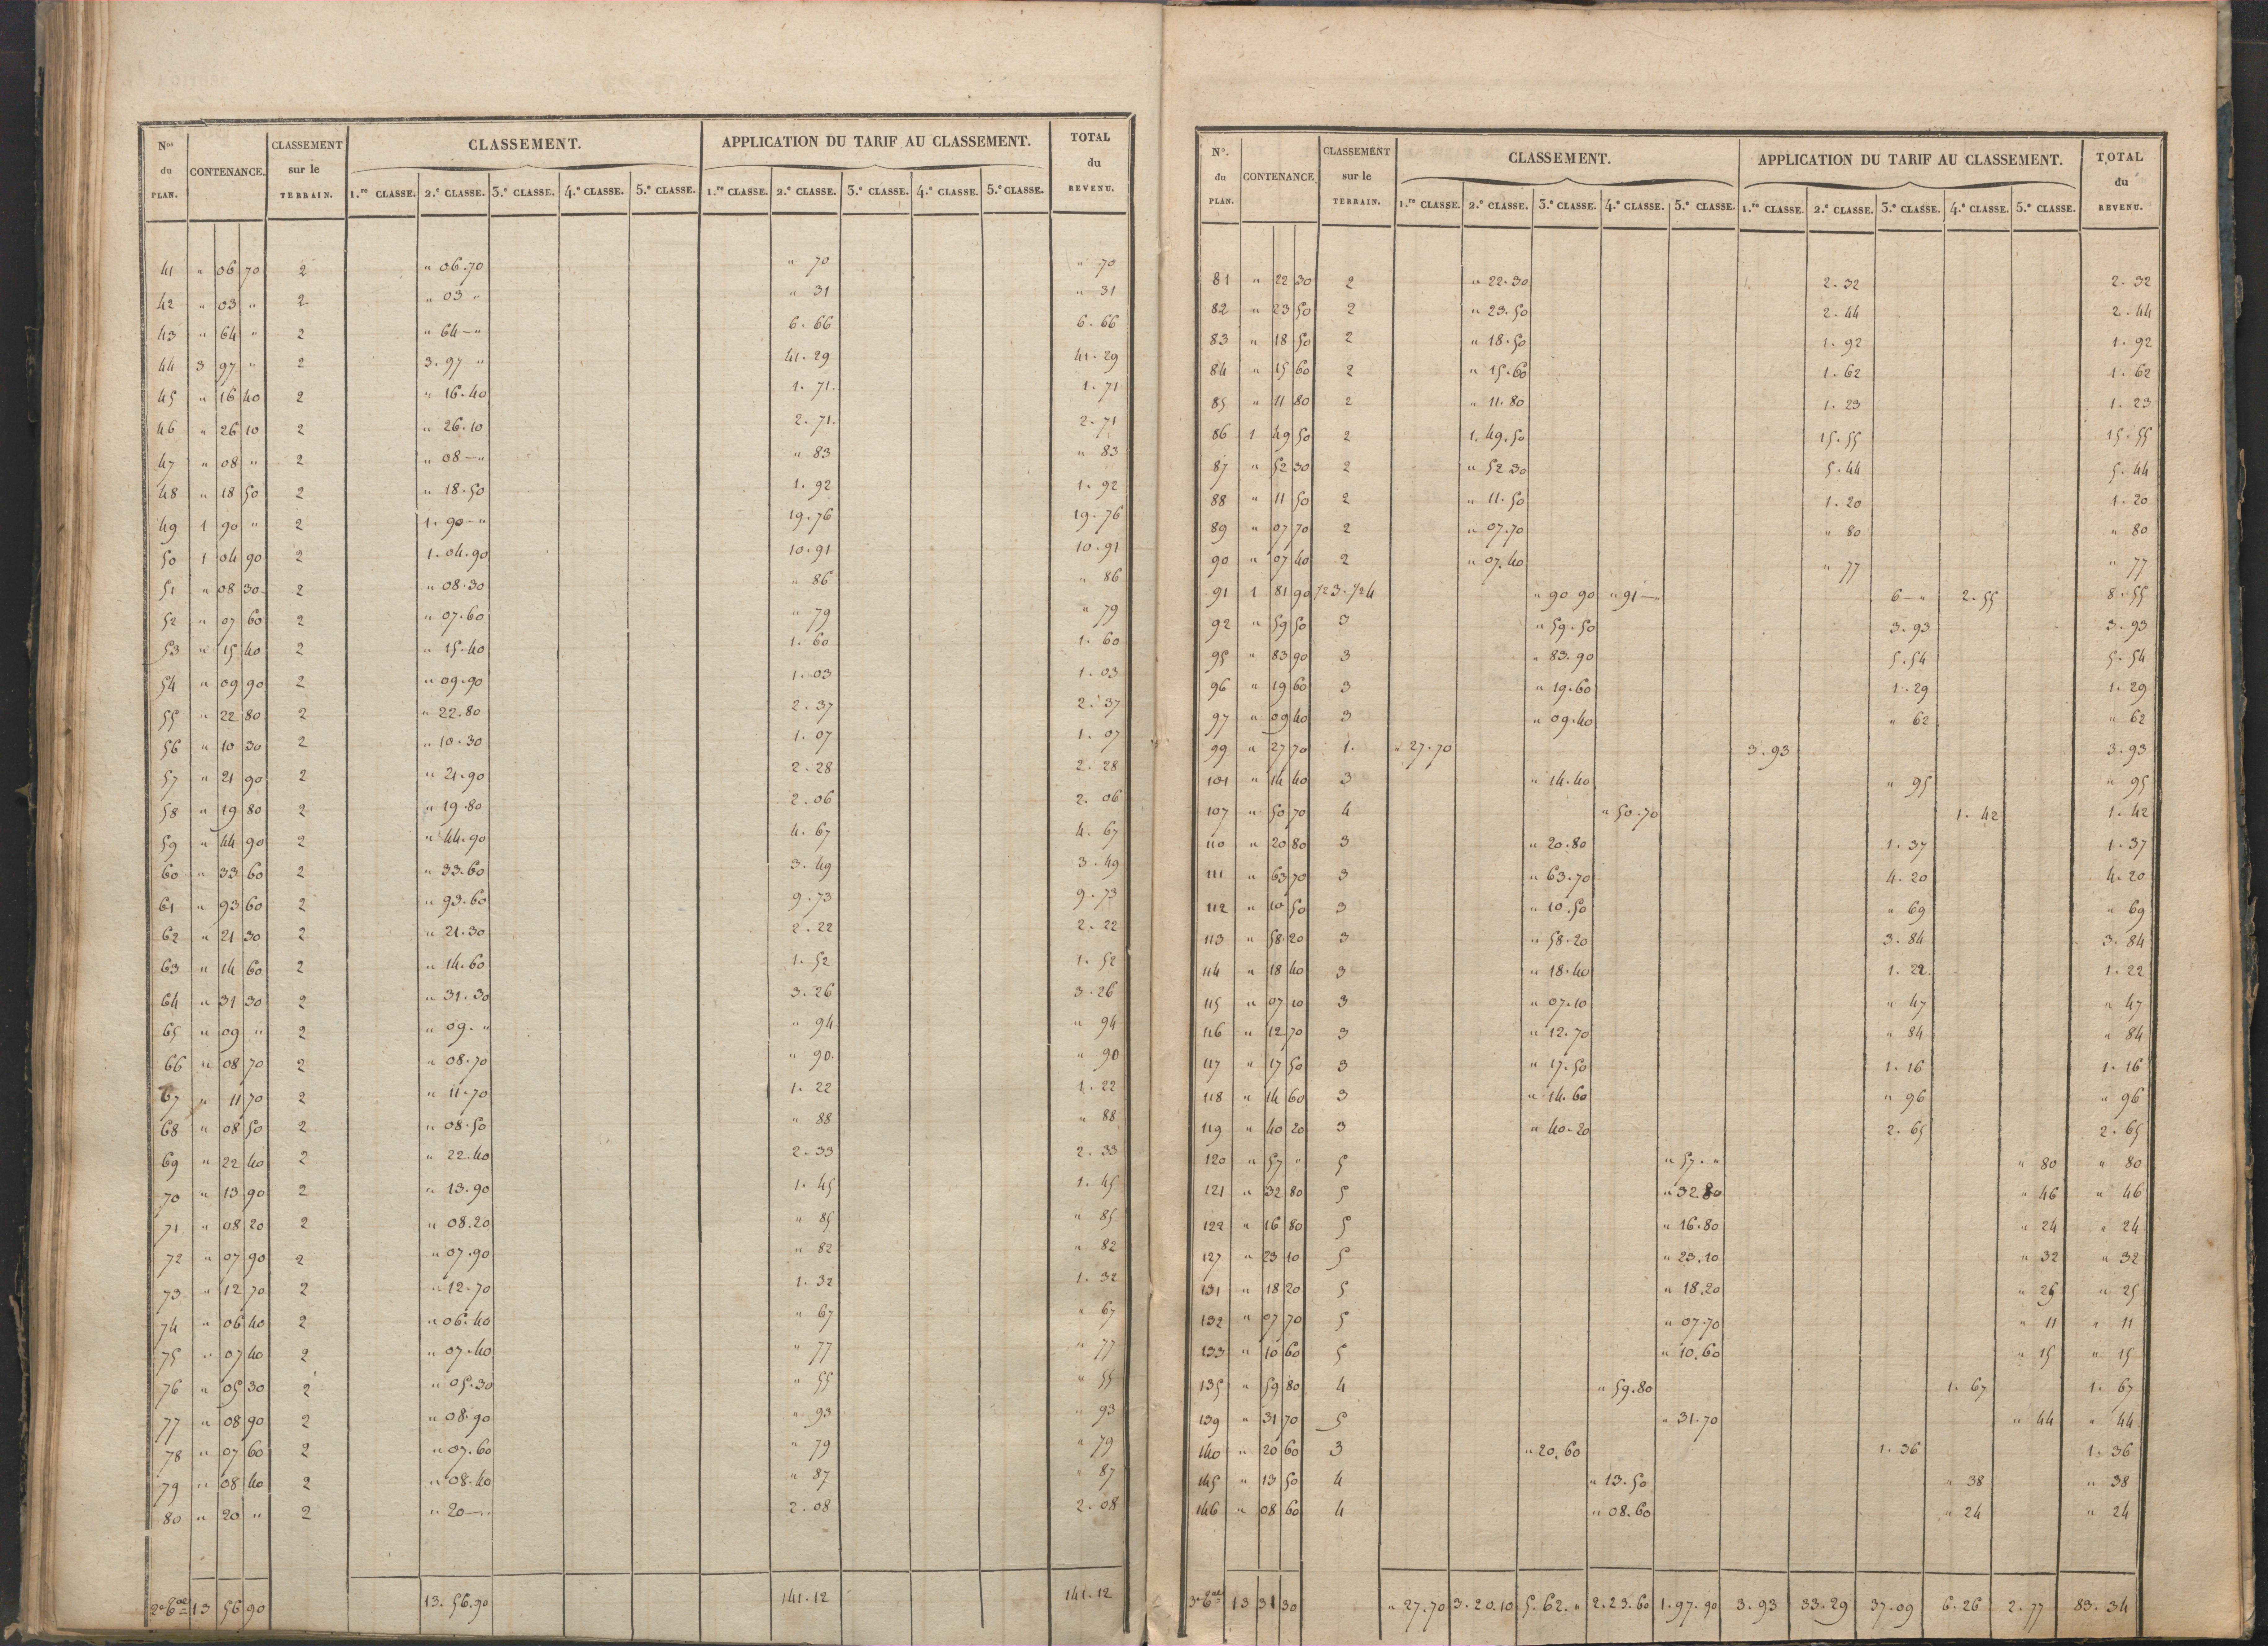 Nos du PLAN. CONTENANCE. CLASSEMENT sur le TERRAIN. CLASSEMENT. APPLICATION DU TARIF AU CLASSEMENT. TOTAL du REVENU.
1.re CLASSE. 2.e CLASSE. 3.e CLASSE. 4.e CLASSE. 5.e CLASSE. 1.re CLASSE. 2.e CLASSE. 3.e CLASSE. 4.e CLASSE. 5.e CLASSE.
41 " 06 70 2 " 06.70 " 70 " 70
42 " 03 " 2 " 03 " " 31 " 31
43 " 64 " 2 " 64 — " 6.66 6.66
44 3 97 " 2 3.97 " 41.29 41.29
45 " 16 40 2 " 16.40 1.71. 1.71
46 " 26 10 2 " 26.10 2.71. 2.71
47 " 08 " 2 " 08 — " " 83 " 83
48 " 18 50 2 " 18.50 1.92 1.92
49 1 90 " 2 1.90 — " 19.76 19.76
50 1 04 90 2 1.04.90 10.91 10.91
51 " 08 30 2 " 08.30 " 86 " 86
52 " 07 60 2 " 07.60 " 79 " 79
53 " 15 40 2 " 15.40 1.60 1.60
54 " 09 90 2 " 09.90 1.03 1.03
55 " 22 80 2 " 22.80 2.37 2.37
56 " 10 30 2 " 10.30 1.07 1.07
57 " 21 90 2 " 21.90 2.28 2.28
58 " 19 80 2 " 19.80 2.06 2.06
59 " 44 90 2 " 44.90 4.67 4.67
60 " 33 60 2 " 33.60 3.49 3.49
61 " 93 60 2 " 93.60 9.73 9.73
62 " 21 30 2 " 21.30 2.22 2.22
63 " 14 60 2 " 14.60 1.52 1.52
64 " 31 30 2 " 31.30 3.26 3.26
65 " 09 " 2 " 09. " " 94 " 94
66 " 08 70 2 " 08.70 " 90. " 90
67 " 11 70 2 " 11.70 1.22 1.22
68 " 08 50 2 " 08.50 " 88 " 88
69 " 22 40 2 " 22.40 2.33 2.33
70 " 13 90 2 " 13.90 1.45 1.45
71 " 08 20 2 " 08.20 " 85 " 85
72 " 07 90 2 " 07.90 " 82 " 82
73 " 12 70 2 " 12.70 1.32 1.32
74 " 06 40 2 " 06.40 " 67 " 67
75 " 07 40 2 " 07.40 " 77 " 77
76 " 05 30 2 " 05.30 " 55 " 55
77 " 08 90 2 " 08.90 " 93 " 93
78 " 07 60 2 " 07.60 " 79 " 79
79 " 08 40 2 " 08.40 " 87 " 87
80 " 20 " 2 " 20 — " 2.08 2.08
13 56 90 13.56.90 141.12 141.12
No. du PLAN. CONTENANCE CLASSEMENT sur le TERRAIN. CLASSEMENT. APPLICATION DU TARIF AU CLASSEMENT. TOTAL du REVENU.
1.re CLASSE. 2.e CLASSE. 3.e CLASSE. 4.e CLASSE. 5.e CLASSE. 1.re CLASSE. 2.e CLASSE. 3.e CLASSE. 4.e CLASSE. 5.e CLASSE.
81 " 22 30 2 " 22.30 2.32 2.32
82 " 23 50 2 " 23.50 2.44 2.44
83 " 18 50 2 " 18.50 1.92 1.92
84 " 15 60 2 " 15.60 1.62 1.62
85 " 11 80 2 " 11.80 1.23 1.23
86 1 49 50 2 1.49.50 15.55 15.55
87 " 52 30 2 " 52 30 5.44 5.44
88 " 11 50 2 " 11.50 1.20 1.20
89 " 07 70 2 " 07.70 " 80 " 80
90 " 07 40 2 " 07.40 " 77 " 77
91 1 81 90 1/2 3. 1/2 4 " 90 90 " 91 — " 6 — " 2.55 8.55
92 " 59 50 3 " 59.50 3.93 3.93
95 " 83 90 3 " 83.90 5.54 5.54
96 " 19 60 3 " 19.60 1.29 1.29
97 " 09 40 3 " 09.40 " 62 " 62
99 " 27 70 1. " 27.70 3.93 3.93
101 " 14 40 3 " 14.40 " 95 " 95
107 " 50 70 4 " 50.70 1.42 1.42
110 " 20 80 3 " 20.80 1.37 1.37
111 " 63 70 3 " 63.70 4.20 4.20
112 " 10 50 3 " 10.50 " 69 " 69
113 " 58 20 3 " 58.20 3.84 3.84
114 " 18 40 3 " 18.40 1.22. 1.22
115 " 07 10 3 " 07.10 " 47 " 47
116 " 12 70 3 " 12.70 " 84 " 84
117 " 17 50 3 " 17.50 1.16 1.16
118 " 14 60 3 " 14.60 " 96 " 96
119 " 40 20 3 " 40.20 2.65 2.65
120 " 57 " 5 " 57. " " 80 " 80
121 " 32 80 5 " 32 80 " 46 " 46
122 " 16 80 5 " 16.80 " 24 " 24
127 " 23 10 5 " 23.10 " 32 " 32
131 " 18 20 5 " 18.20 " 25 " 25
132 " 07 70 5 " 07.70 " 11 " 11
133 " 10 60 5 " 10.60 " 15 " 15
135 " 59 80 4 " 59.80 1.67 1.67
139 " 31 70 5 " 31.70 " 44 " 44
140 " 20 60 3 " 20.60 1.36 1.36
145 " 13 50 4 " 13.50 " 38 " 38
146 " 08 60 4 " 08.60 " 24 " 24
13 31 30 " 27.70 3.20.10 5.62. " 2.23.60 1.97.90 3.93 33.29 37.09 6.26 2.77 83.34